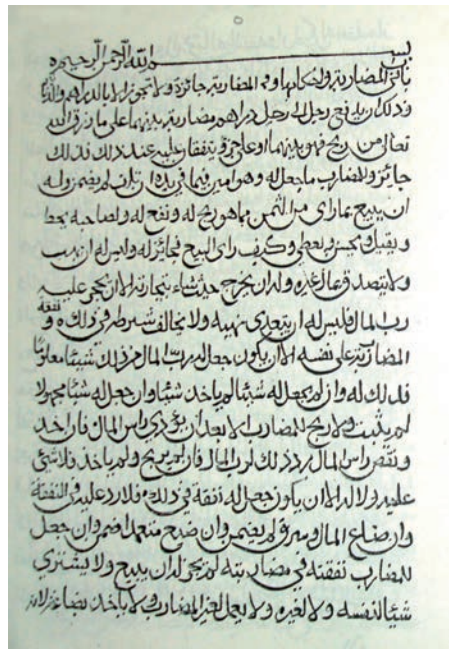 ٥
بسم الله الرحمن الرحيم
باب في المضاربة واحكامها وفي المضاربة جائزة ولا تجوز الا بالدراهم والدنا
وذلك ان يدفع رجل الى رجل دراهم مضاربة بينهما على ما رزق الله
تعالى من ربح فهو بينهما او على جزء يتفقان عليه عند ذلك فذلك
جائز وللمضارب ما جعل له وهو امين فيما في يده ان تلف لم يضمن وله
ان يبيع بما راى من الثمن مما هو ربح له ونفع له ولصاحبه يحط
ويقيل ويحسن ويعطي وكيف راى البيع فجائز له وليس له ان
ولا يتصدق عال غيره وله ان يخرج حيث شاء بتجارته الا ان يحجر عليه
رب المال فليس له ان يتعدى نهيه ولا يخالف شرطه في ذلك ونفقة
المضاربة على نفسه الا ان يكون جعل له رب المال من ذلك شيئا معلوما
فذلك له وان لم يجعل له شيئا لم ياخذ شيئا وان جعل له شيئا مجهولا
لم يثبت ولا ربح للمضارب الا بعد ان يؤدي راس المال فان اخذ
ونقص راس المال رد ذلك لرب المال فان لم يربح ولم ياخذ فلا شئ
عليه ولا له الا ان يكون جعل له نفقة في ذلك فلا رد عليه في النفقة
وان ضاع المال وسرق لم يضمن وان ضيع متعمدا ضمن وان جعل
للمضارب نفقته في مضاربته لم يجز له ان يبيع ولا يشتري
شيئا لنفسه ولا لغيره ولا يعمل لغير المضارب ولا ياخذ بضاعة